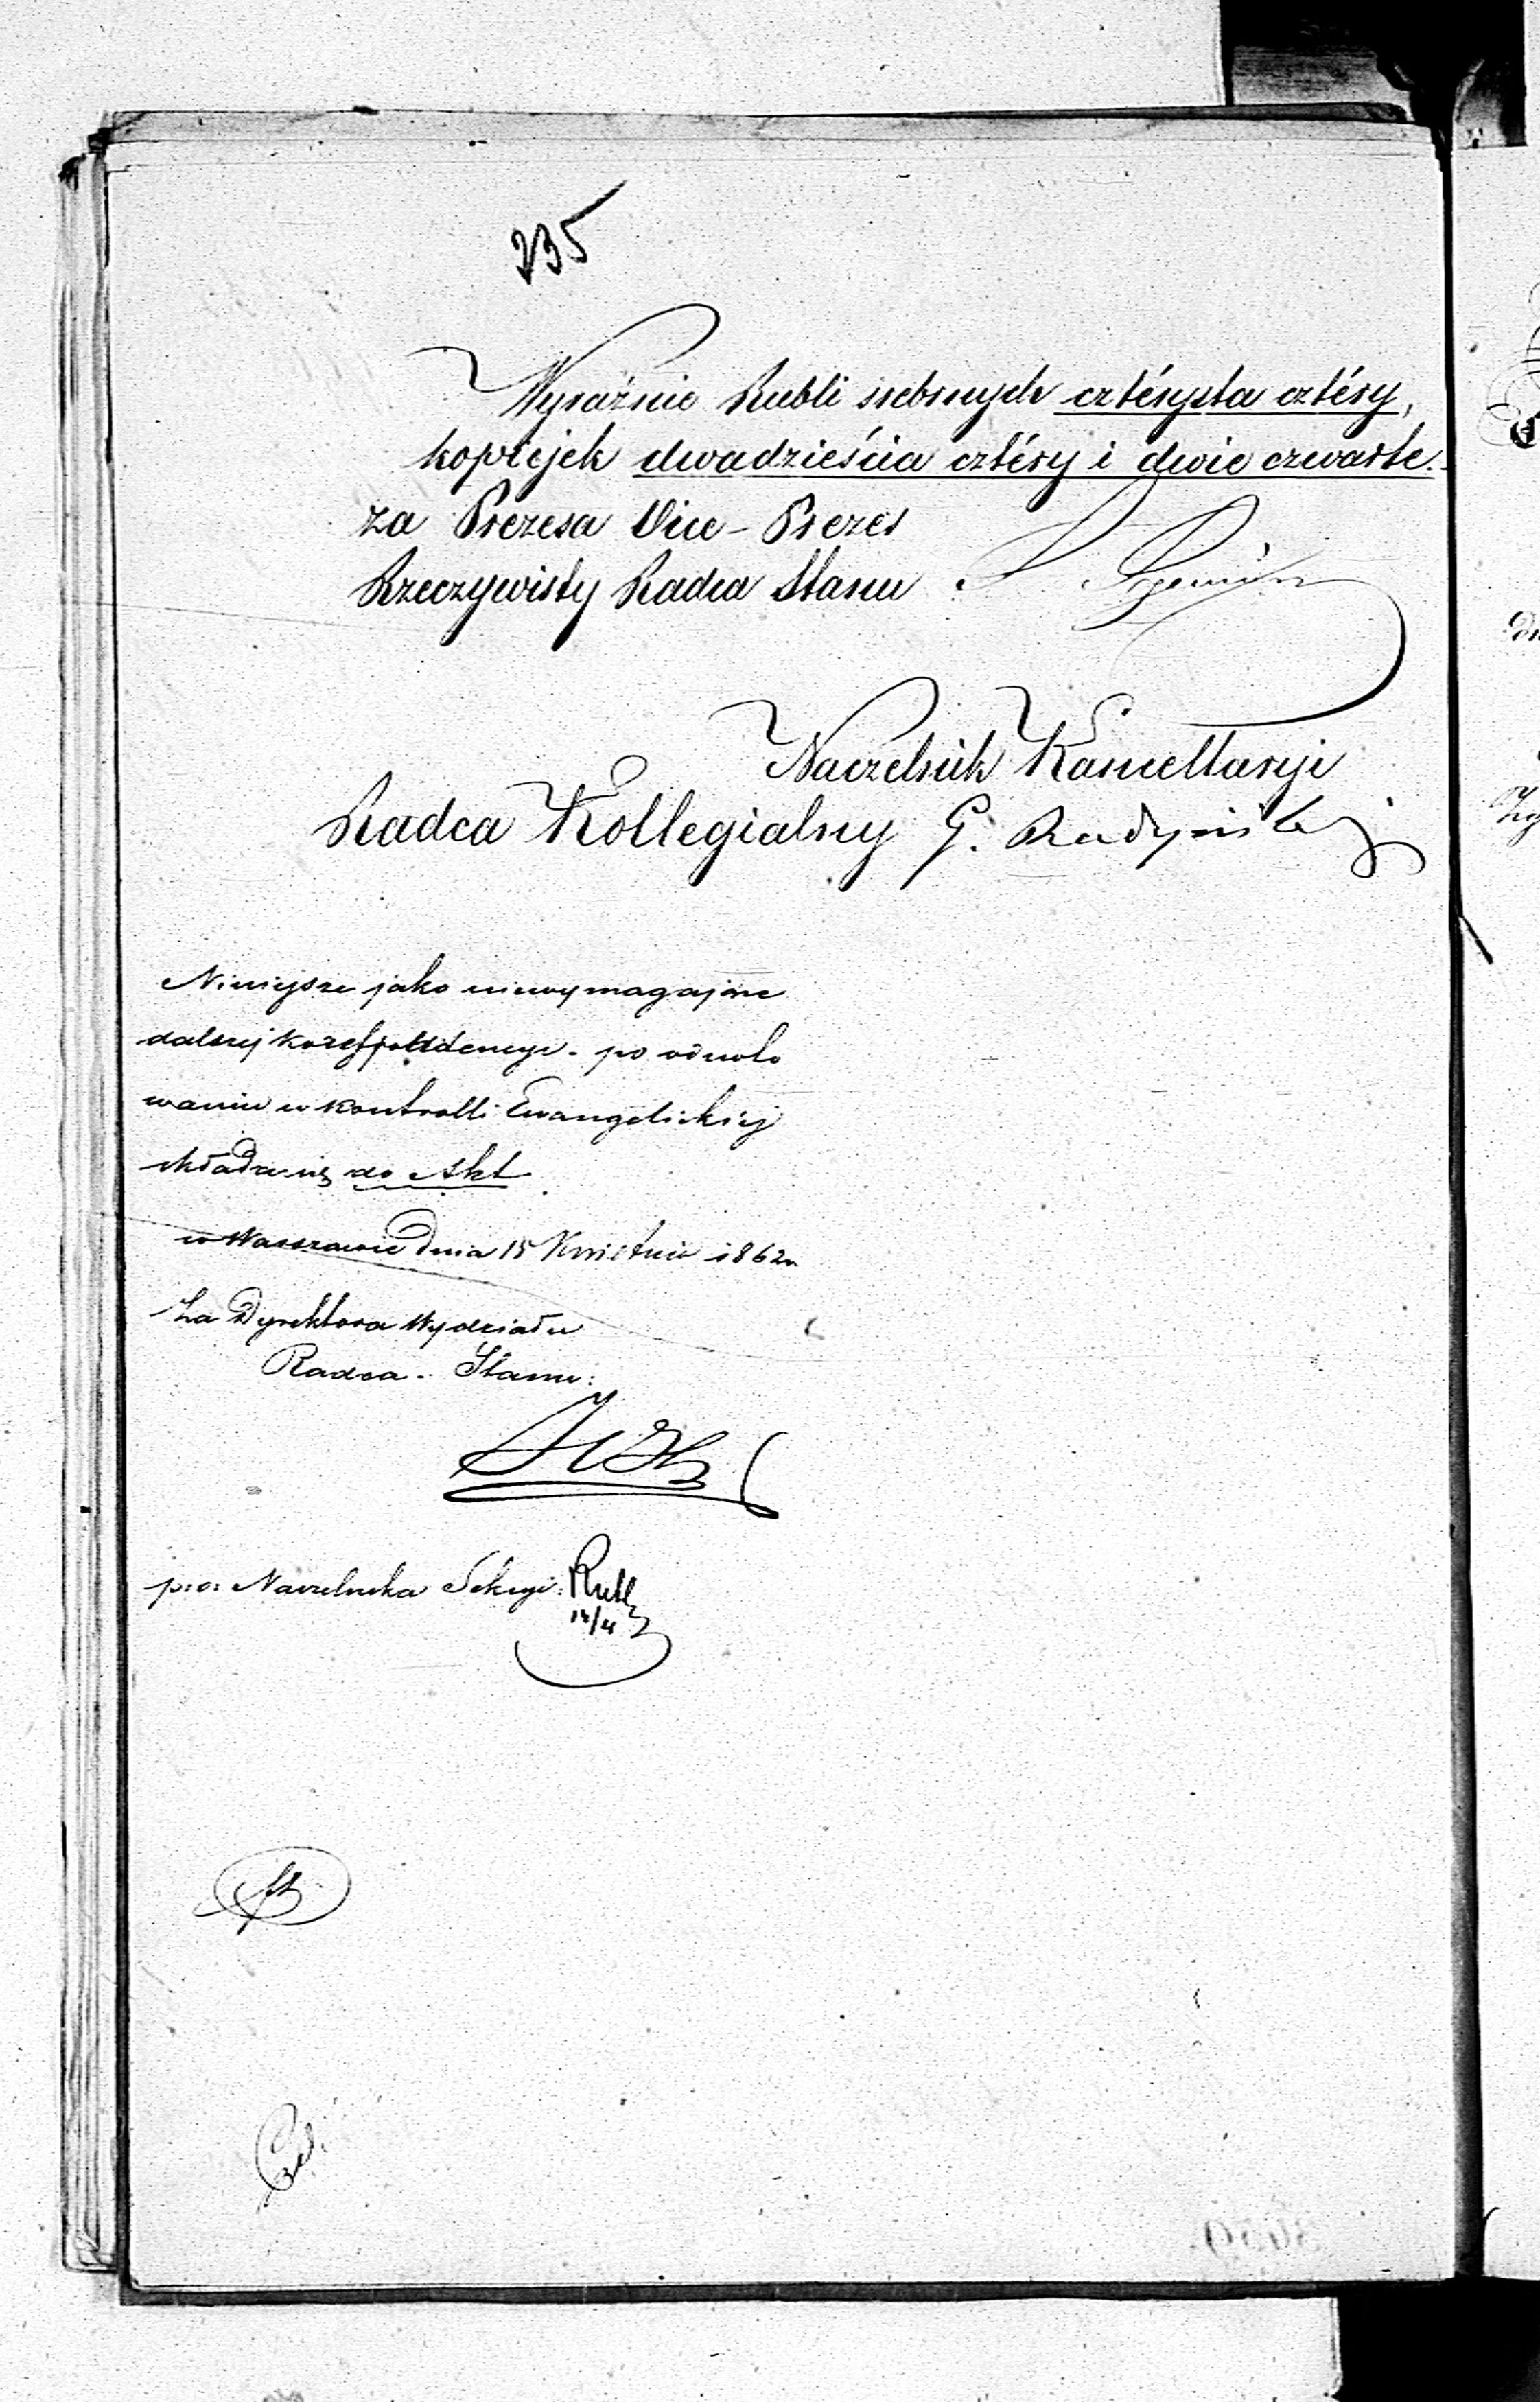 235
Wyraźnie Rubli srebrnych cztérysta cztéry,
kopiejek dwadzieścia cztéry i dwie czwarte.
za Prezesa Vice-Prezes
Rzeczywisty Radca Stanu
Naczelnik Kancellaryi
Radca Kollegialny G.
Niniejsze jako niewymagające
dalszej korespondencyi - po odnoto
waniu w kontrolli Ewangelickiej
składa się do Akt
w Warszawie dnia 15 Kwietnia 1862 r.
Za Dyrektora Wydziału
Radca - Stanu:
p:o: Naczelnika Sekcyi: